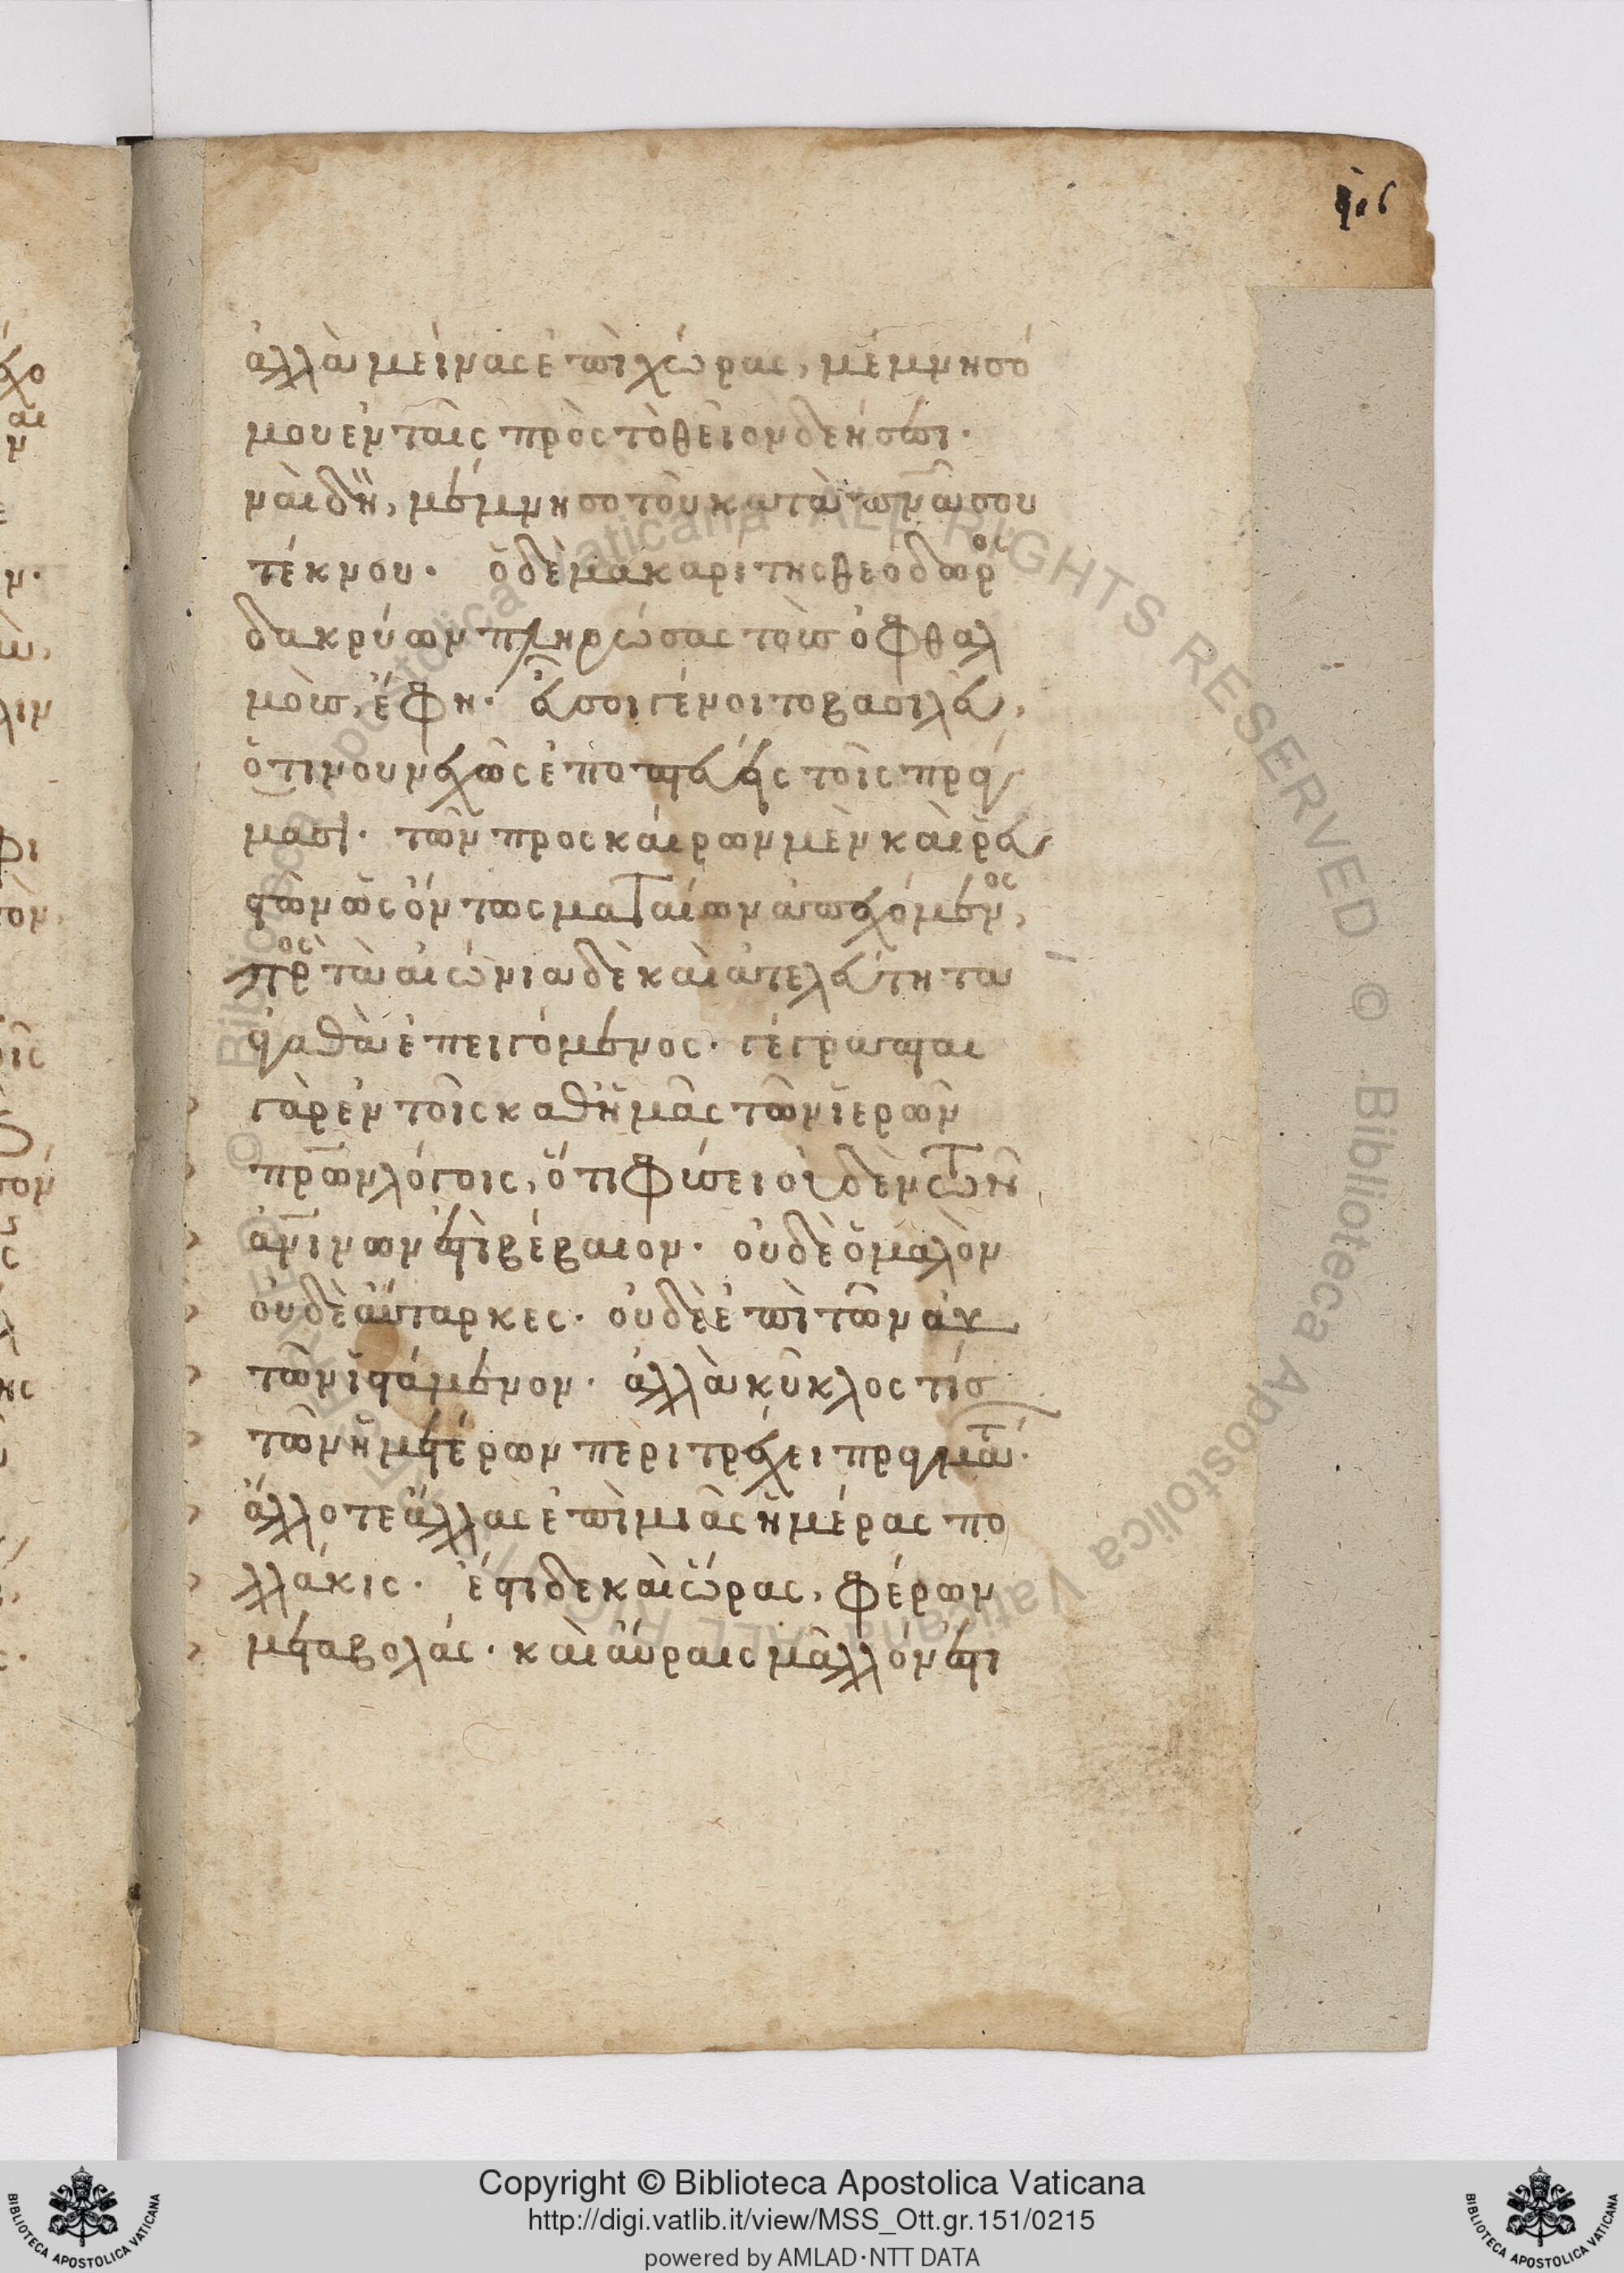 ἀλλὰ μείνας ἐπὶ χώρας, μέμνησό
μου ἐν ταῖς πρὸς τὸ θεῖον δεήσεσι.
ναὶ δὴ, μέμνησο τοῦ κατὰ πνᾶ σου
τέκνου. ὁ δὲ μακαρίτης θεόδωρος
δακρύων πληρώσας τοὺς ὀφθαλ
μοὺς, ἔφη. εὖ σοι γένοιτο βασιλεῦ,
ὅτι νουνεχῶς ἐπιστατεῖς τοῖς πράγ
μασι. τῶν προσκαίρων μὲν καὶ ῥευ
στῶν ὡς ὄντως ματαίων ἀπεχόμενος,
πρὸς τὰ αἰώνια δὲ καὶ ἀτελεύτητα
ἀγαθὰ ἐπειγόμενος. γέγραπται
γὰρ ἐν τοῖς καθ' ἡμᾶς τῶν ἱερῶν
πρων λόγοις, ὅτι φύσει οὐδὲν τῶν
ἀνινων ἐστὶ βέβαιον. οὐδὲ ὁμαλὸν
οὐδὲ αὔταρκες. οὐδὲ ἐπὶ τῶν αὐ
τῶν ἱστάμενον. ἀλλὰ κύκλος τίς
τῶν ἡμετέρων περιτρέχει πραγμάτων.
ἄλλοτε ἄλλας ἐπὶ μιᾶς ἡμέρας πο
λλάκις. ἔστι δε καὶ ὥρας, φέρων
μεταβολάς. καὶ αὔραις μᾶλλόν ἐστι
Copyright © Biblioteca Apostolica Vaticana
http://digi.vatlib.it/view/MSS_Ott.gr.151/0215
powered by AMLAD·NTT DATA
BIBLIOTECA APOSTOLICA VATICANA
BIBLIOTECA APOSTOLICA VATICANA